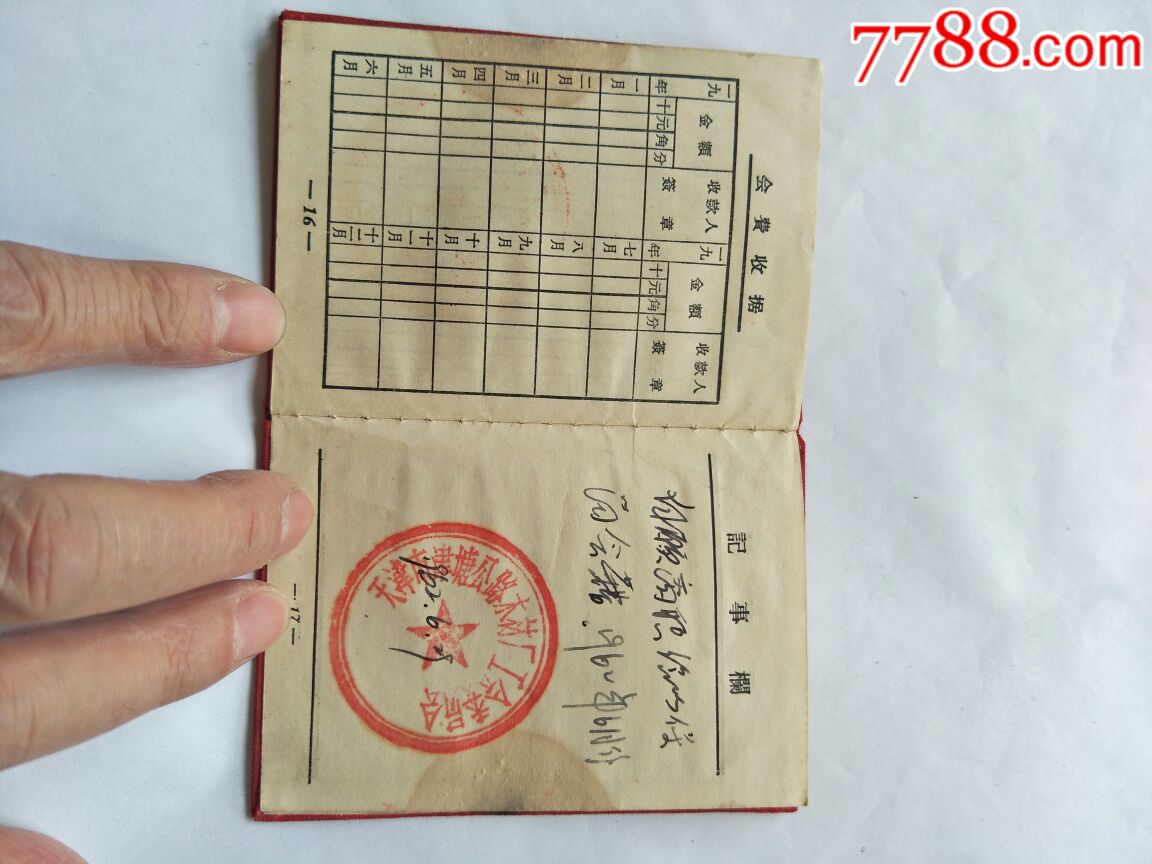 7788.com
会費收据
一九 年 金額 收款人簽章 一九 年 金額 收款人簽章
十 元 角 分 十 元 角 分
一月 七月
二月 八月
三月 九月
四月 十月
五月 十一月
六月 十二月
—16—
記事欄
自願离职给以保
留会籍. 1962年6月
天津市 木材厂工会委員会
1962.6.29
—17—